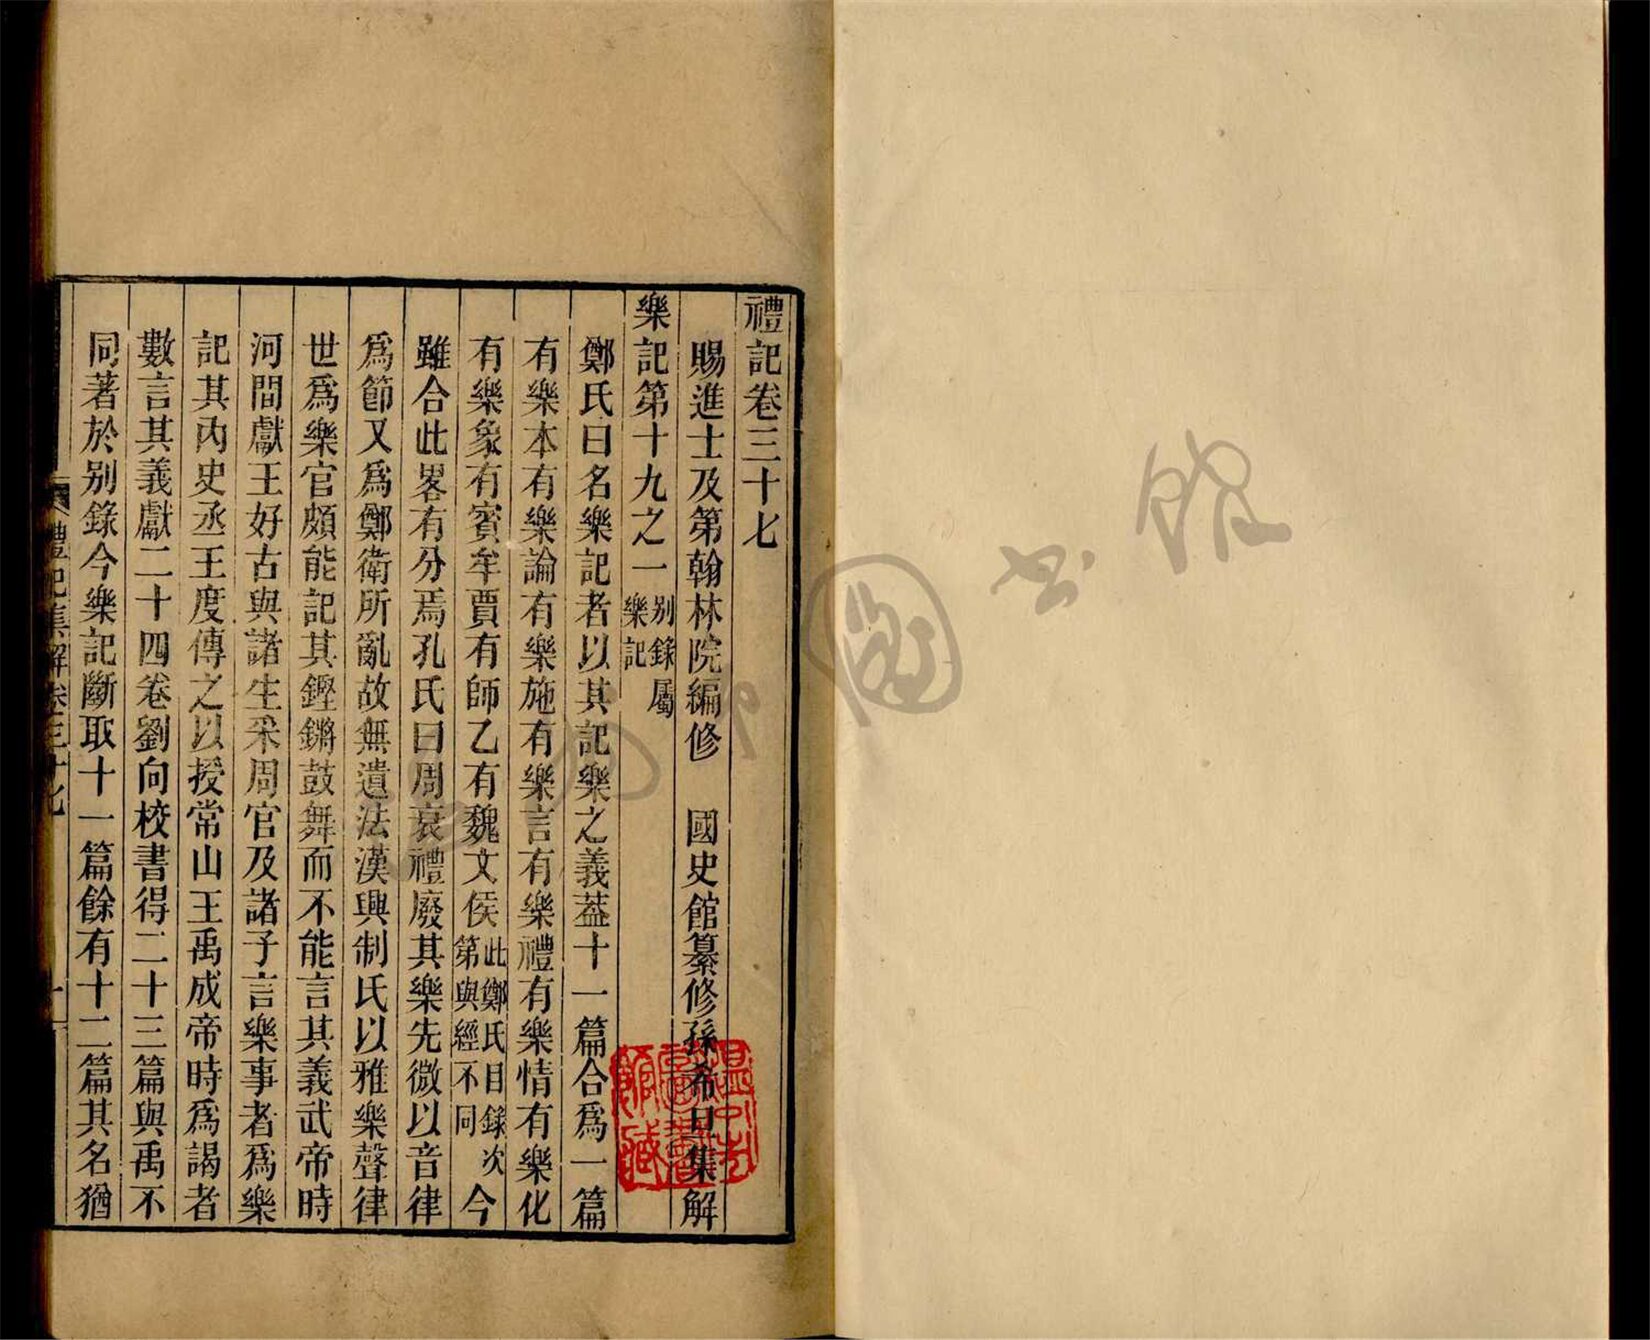 禮記卷三十七
賜進士及第翰林院編修　國史館纂修孫希旦集解
樂記第十九之一別錄屬樂記
鄭氏曰名樂記者以其記樂之義葢十一篇合爲一篇
有樂本有樂論有樂施有樂言有樂禮有樂情有樂化
有樂象有賓牟賈有師乙有魏文侯此鄭氏目錄次第與經不同今
雖合此畧有分焉孔氏曰周衰禮廢其樂先微以音律
爲節又爲鄭衛所亂故無遺法漢興制氏以雅樂聲律
世爲樂官頗能記其鏗鏘鼓舞而不能言其義武帝時
河間獻王好古與諸生采周官及諸子言樂事者爲樂
記其內史丞王度傳之以授常山王禹成帝時爲謁者
數言其義獻二十四卷劉向校書得二十三篇與禹不
同著於別錄今樂記斷取十一篇餘有十二篇其名猶
禮記集解卷三十七